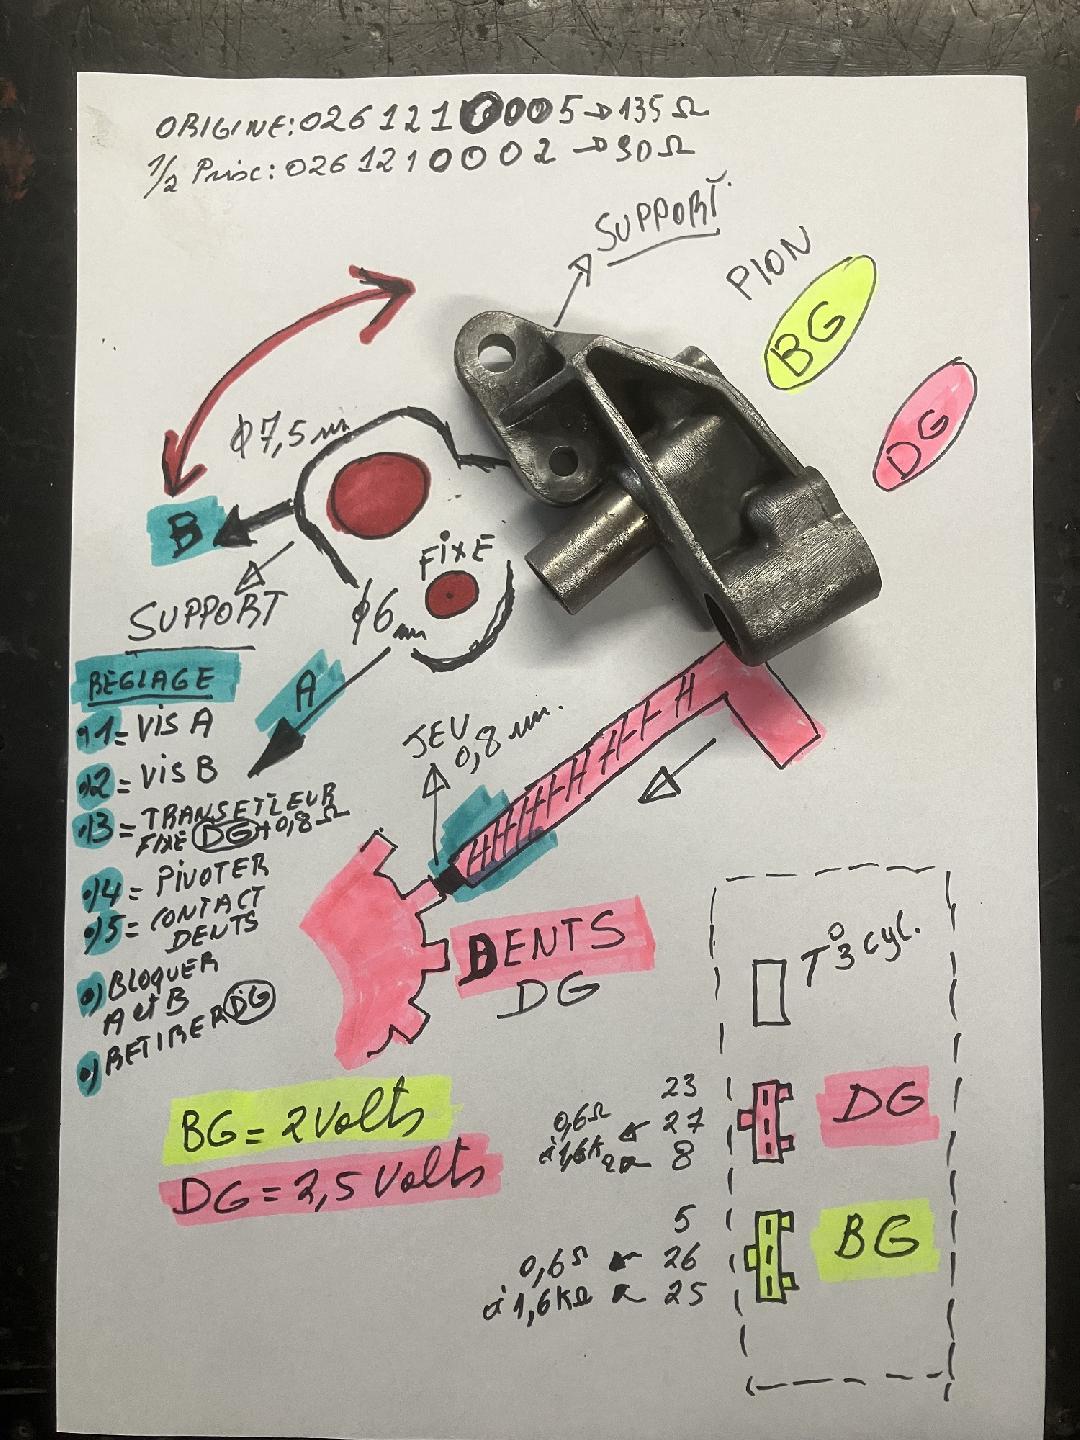 ORIGINE: 0261210005 → 135 Ω
1/2 Prise: 0261210002 → 90 Ω
SUPPORT
PION
BG
DG
Φ7,5 mm
B
FIXE
SUPPORT
Φ6 mm
REGLAGE
1 = VIS A
2 = VIS B
3 = TRANSETTEUR
FIXE DG + 0,8 Ω
4 = PIVOTER
5 = CONTACT
DENTS
BLOQUER
A et B
RETIRER DG
A
JEU
0,8 mm.
DENTS
DG
T° 3 cyl.
BG = 2 Volts
DG = 2,5 Volts
23
0,6Ω ← 27
à 1,6K 8
DG
5
0,6Ω ← 26
à 1,6KΩ 25
BG